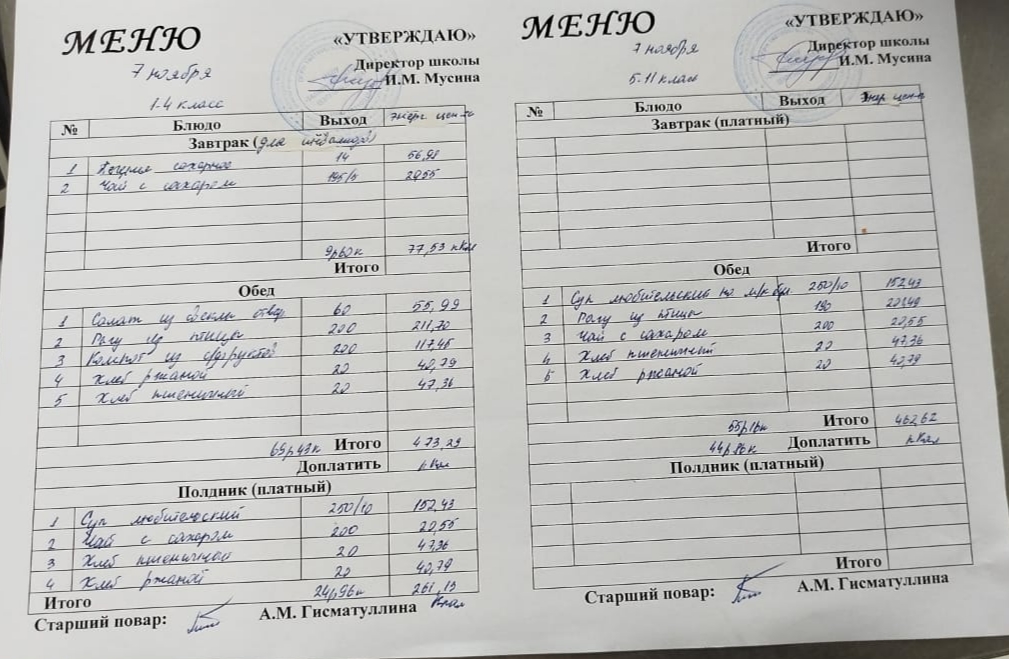 МЕНЮ
«УТВЕРЖДАЮ»
7 ноября
Директор школы
И.М. Мусина
1-4 класс
№ Блюдо Выход Энерг цен-ть
Завтрак (для инвалидов)
1 Печенье сахарное 14 56,98
2 Чай с сахаром 195/5 20,55
9р60к 77,53 кКал
Итого
Обед
1 Салат из свеклы отвар 60 55,99
2 Рагу из птицы 200 211,70
3 Компот из с/фруктов 200 117,45
4 Хлеб ржаной 20 40,79
5 Хлеб пшеничный 20 47,36
65р43к Итого 473,29
Доплатить кКал
Полдник (платный)
1 Суп любительский 250/10 152,43
2 Чай с сахаром 200 20,55
3 Хлеб пшеничный 20 47,36
4 Хлеб ржаной 20 40,79
Итого 24р96к 261,13
Старший повар: А.М. Гисматуллина Ккал
МЕНЮ
«УТВЕРЖДАЮ»
7 ноября
Директор школы
И.М. Мусина
5-11 класс
№ Блюдо Выход Энер цен-ть
Завтрак (платный)
Итого
Обед
1 Суп любительский на м/к бул 250/10 152,43
2 Рагу из птицы 190 201,49
3 Чай с сахаром 200 20,55
4 Хлеб пшеничный 20 47,36
5 Хлеб ржаной 20 40,79
55р16к Итого 462,62
44р86к Доплатить кКал
Полдник (платный)
Итого
Старший повар: А.М. Гисматуллина